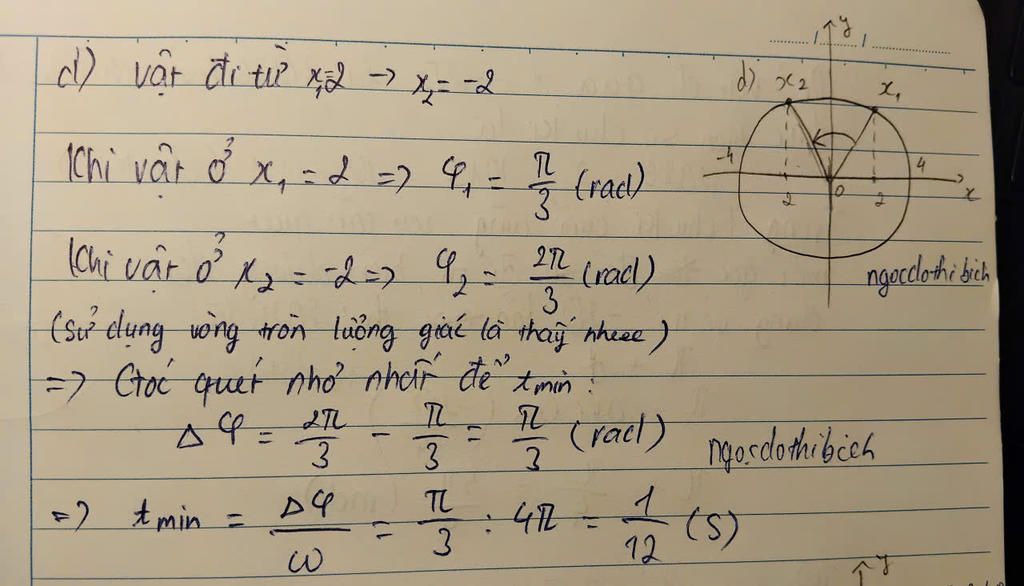 d) vật đi từ x₁=2 → x₂ = -2
Khi vật ở x₁ = 2 => φ₁ = π/3 (rad)
Khi vật ở x₂ = -2 => φ₂ = 2π/3 (rad)
(Sử dụng vòng tròn lưỡng giác là thấy nheee)
=> Góc quét nhỏ nhất để tmin:
Δφ = 2π/3 - π/3 = π/3 (rad)
=> tmin = Δφ/ω = π/3 : 4π = 1/12 (s)
y
d) x₂ x₁
-4 4
2 0 2 x
ngocdothibich
ngocdothibich
y